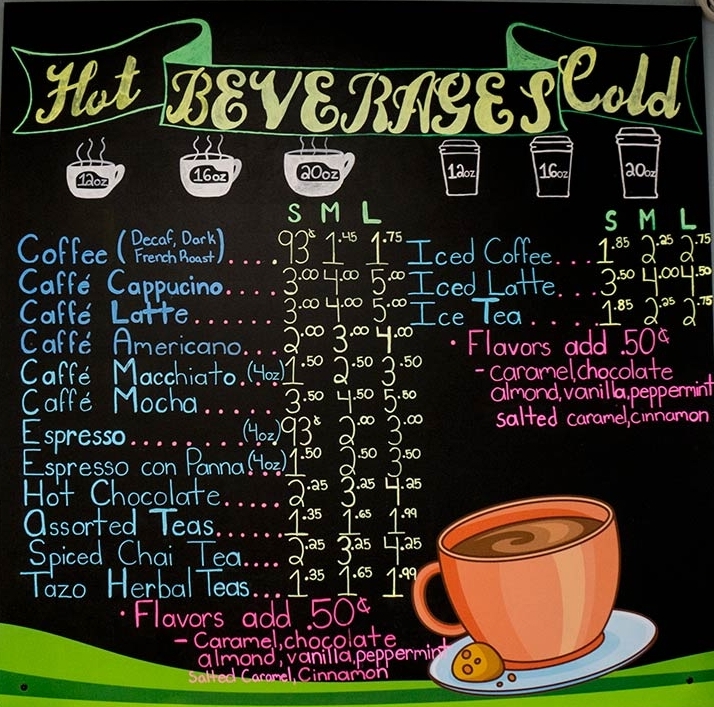 Hot BEVERAGES Cold
12oz 16oz 20oz 12oz 16oz 20oz
S M L
Coffee (Decaf, Dark French Roast).... 93¢ 1.45 1.75
Caffé Cappucino.... 3.00 4.00 5.00
Caffé Latte...... 3.00 4.00 5.00
Caffé Americano... 2.00 3.00 4.00
Caffé Macchiato.(4oz) 1.50 2.50 3.50
Caffé Mocha...... 3.50 4.50 5.50
Espresso........(4oz) 93¢ 2.00 3.00
Espresso con Panna(4oz) 1.50 2.50 3.50
Hot Chocolate..... 2.25 3.25 4.25
Assorted Teas..... 1.35 1.65 1.99
Spiced Chai Tea.... 2.25 3.25 4.25
Tazo Herbal Teas... 1.35 1.65 1.99
• Flavors add .50¢
- Caramel,chocolate
almond, vanilla,peppermint
Salted Caramel,Cinnamon
S M L
Iced Coffee... 1.85 2.25 2.75
Iced Latte... 3.50 4.00 4.50
Ice Tea.... 1.85 2.25 2.75
• Flavors add .50¢
- caramel,chocolate
almond,vanilla,peppermint
salted caramel,cinnamon